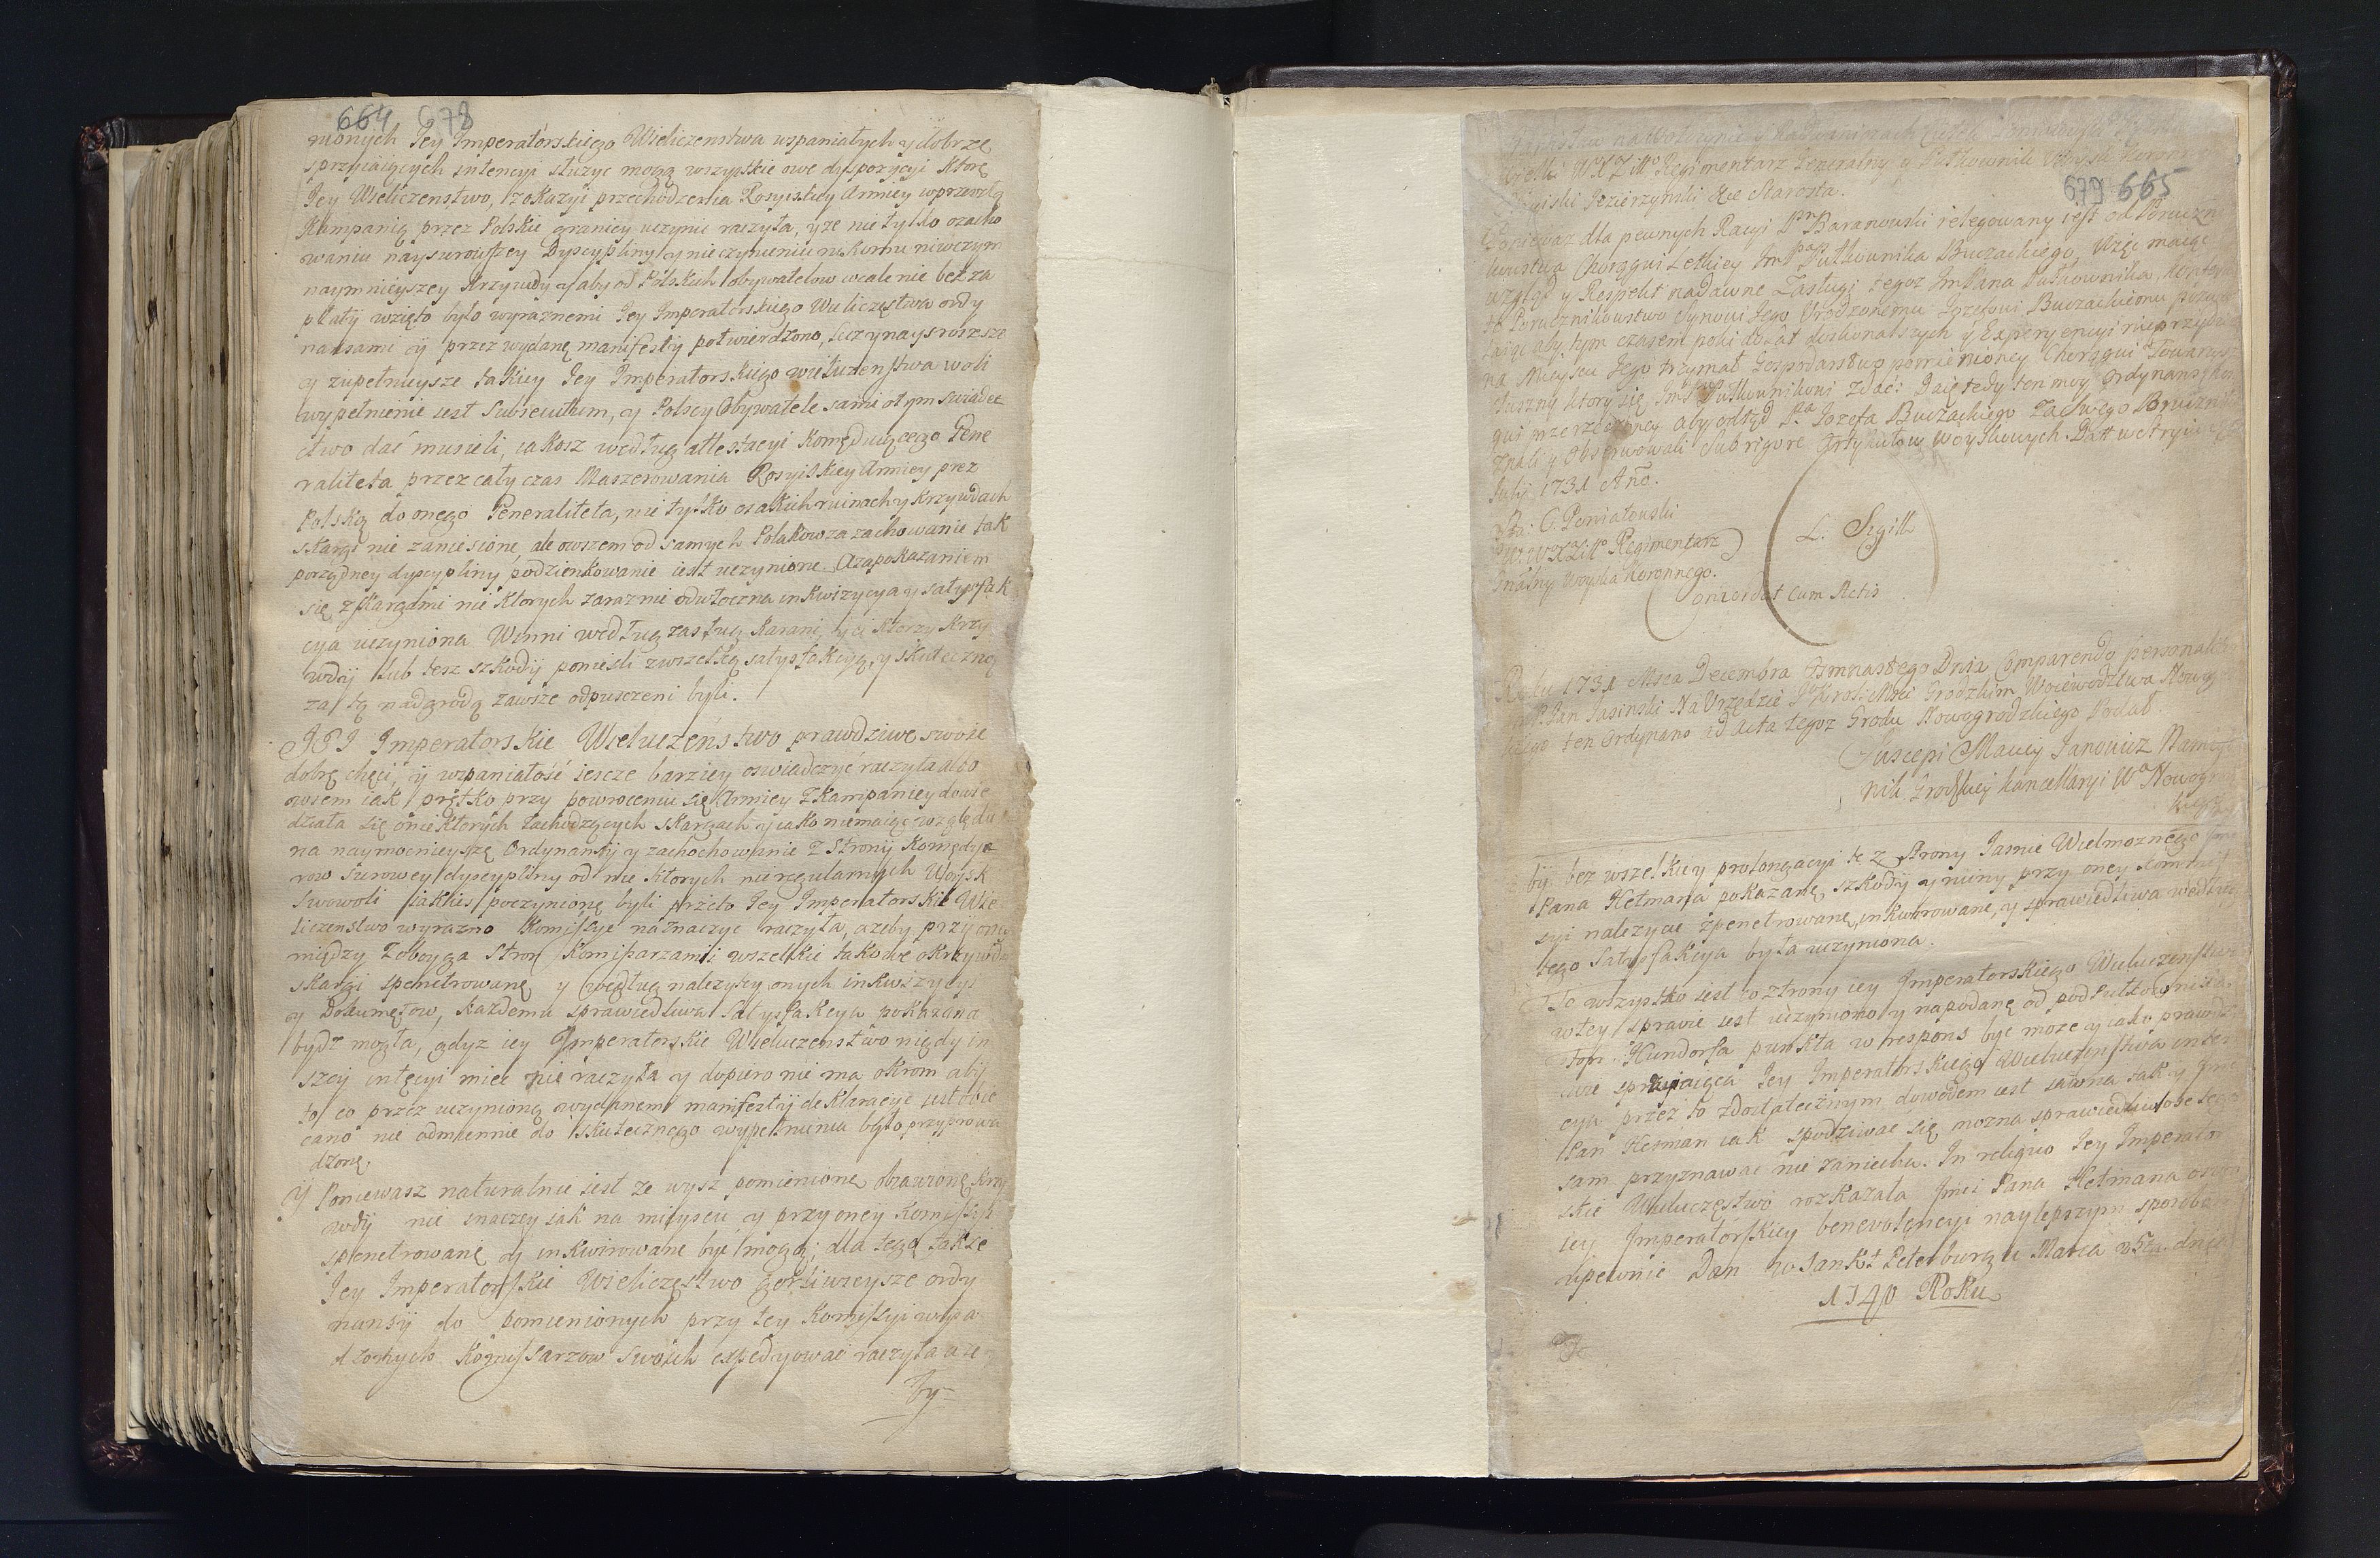 664 678
mionych Jey Imperatorskiego Wieliczenstwa wspaniałych y dobrze
sprzyiaiących intencyi słuzyc mogą wszystkie owe dyspozycyi ktorę
Jey Wieliczenstwo, zokazyi przechodzenia Rosyiskiey Armiey wprzeszłą
Kampanią przez Polskie granicy uczynic raczyła, yze nie tylko ozacho
waniu naysurowszey Dyscypliny y nie czynieniu nikomu niwczym
naymnieyszey Krzywdy y aby od Polskich obywatelow wcale nie bez za
płaty wzięto było wyraznemi Jey Imperatorskiego Wieliczęstwa ordy
nansami y przez wydanę manifesty potwierdzono, lecz y naysrozsze
y zupełnieysze takiey Jey Imperatorskiego wieliczenstwa woli
wypełnienie iest Subsecutum, y Polscy Obywatele sami otym swiadec
ctwo dać musieli, iakosz według attestacyi Komęduiącego Gene
raliteta przez cały czas Maszerowania Rosyiskiey Armiey przez
Polskę do onego Generaliteta, nie tylko o iakich ruinach y Krzywdach
skargi nie zaniesionę, ale owszem od samych Polakow za zachowanie tak
porządney dyscypliny podzienkowanie iest uczynione. A za pokazaniem
się z skargami nie ktorych zaraz nie odwłoczna inkwizycya y satysfak
cya uczyniona Winni według zasług Karani, y ci ktorzy Krzy
wdy lub tesz szkody poniesli zwszelką satysfakcyą, y skuteczną
za tę nadgrodą zawsze odpusczeni byli.
JEJ Imperatorskie Wieliczeństwo prawdziwe swoie
dobrę chęci, y wspaniałość iescze barziey oswiadczyc raczyła albo
owsem iak prętko przy powroceniu się Armiey z Kampaniey dowie
działa się o nie Ktorych zachodzących skargach y iako niemaiąc względu
na naymocnieyszę Ordynansy y zachochowanie z Strony Komędye
row surowey dyscypliny od nie Ktorych nieregularnych Woysk
Swowoli iakies poczynionę byli przeto Jey Imperatorskie Wie
liczenstwo wyrazno Komissyę naznaczyc raczyła, azeby przy oney
między z oboyga Stron Komisarzami wszelkie takowe o Krzywdach
skargi spenetrowanę y według nalezytey onych inkwizycyi
y Dokumętow, kazdemu sprawiedliwa Satysfakcya pokazana
bydz mogła, gdyz iey Imperatorskie Wieliczenstwo nigdy in
szey intęcyi miec nie raczyła y dopiero nie ma okrom aby
to co przez uczynionę wydanemi manifesty deklaracye iest obie
cano nie odmiennie do skutecznego wypełnienia było przyprowa
dzonę.
Y Poniewasz naturalnie iest ze wysz pomienionę obrawionę Krzy
wdy nie inaczey iak na mieyscu y przy oney Komissyi
spenetrowanę y inkwirowane byc mogą; dla tego także
Jey Imperatorskie Wieliczęstwo gorliwieysze ordy
nansy do pomienionych przy tey Komissyi wysa
dzonych Komissarzow swoich expedyowac raczyła aze
by=
679 665
Regimentarz Generalny y Pułkownik Woyska Koron
Jezierzynski &c Starosta.
Poniewaz dla pewnych Racyi Pan Baranowski relegowany iest od Porucz
kowstwa Chorągui Letkiey ImPana Pułkownika Buczackiego, Więc maiąc
wzgląd y Respekt na dawne Zasługi tegoz ImPana Pułkownika, konferuię
to Porucznikowstwo Synowi Jego Urodzonemu Jozefowi Buczackiemu pozwa
laiąc aby tym czasem poki do Lat doskonalszych y Experyencyi nie przyidzie
na Mieyscu Jego trzymał Gospodarstwo pomienioney Chorągui Towarzysz
słuszny ktory się ImP Pułkownikowi zdać: Daię tedy ten moy Ordynans
gui przerzeczoney aby odtąd Pa Jozefa Buczackiego za swego Porucznika
znali y Obserwowali Sub rigore Artykułow Woyskowych. Datt w Stryiu
July 1731 Ano.
Sta: C. Poniatowski
W: WXLitt Regimentarz
Gnalny Woyska Koronnego.
L. Sigill
Concordat Cum Actis
Roku 1731 Msca Decembra Osmnastego Dnia Comparendo personaliter
Pan Jasinski Na Urzędzie JoKroli Msci Grodzkim Woiewodztwa Nowog
ten Ordynans ad Acta tegoz Grodu Nowogrodzkiego Podał.
Suscepi Maciey Janowicz Namiest
nik Grodzkiey kancellaryi Wa Nowogr
kiego
by bez wszelkiey prolongacyi te z strony Jasnie Wielmoznego Jmci
Pana Hetmana pokazanę szkody y ruiny przy oney Kommis
syi nalezycie zpenetrowanę, inkwirowane, y sprawiedliwa według
tego Satysfakcya była uczyniona.
To wszystko iest co ztrony iey Imperatorskiego Wieliczenstwa
wtey sprawie iest uczyniono y na podanę od podPułkownika
fon Hundorfa punkta w respons byc moze y iako prawdzi
wie sprzyiaiąca Jey Imperatorskiego Wieliczenstwa inten
cya przez to zdostatecznym dowodem iest iawna tak y Jmc
Pan Hetman iak spodziwac się mozna sprawiedliwosc tego
sam przyznawac nie zaniecha. In reliquo Jey Imperator
skie Wieliczęstwo rozkazała Jmci Pana Hetmana o swo
iey Imperatorskiey benewolęncyi naylepszym sposobem
upewnic Dan w Sankt Peterburgu Marca 25tu dnia
1740 Roku